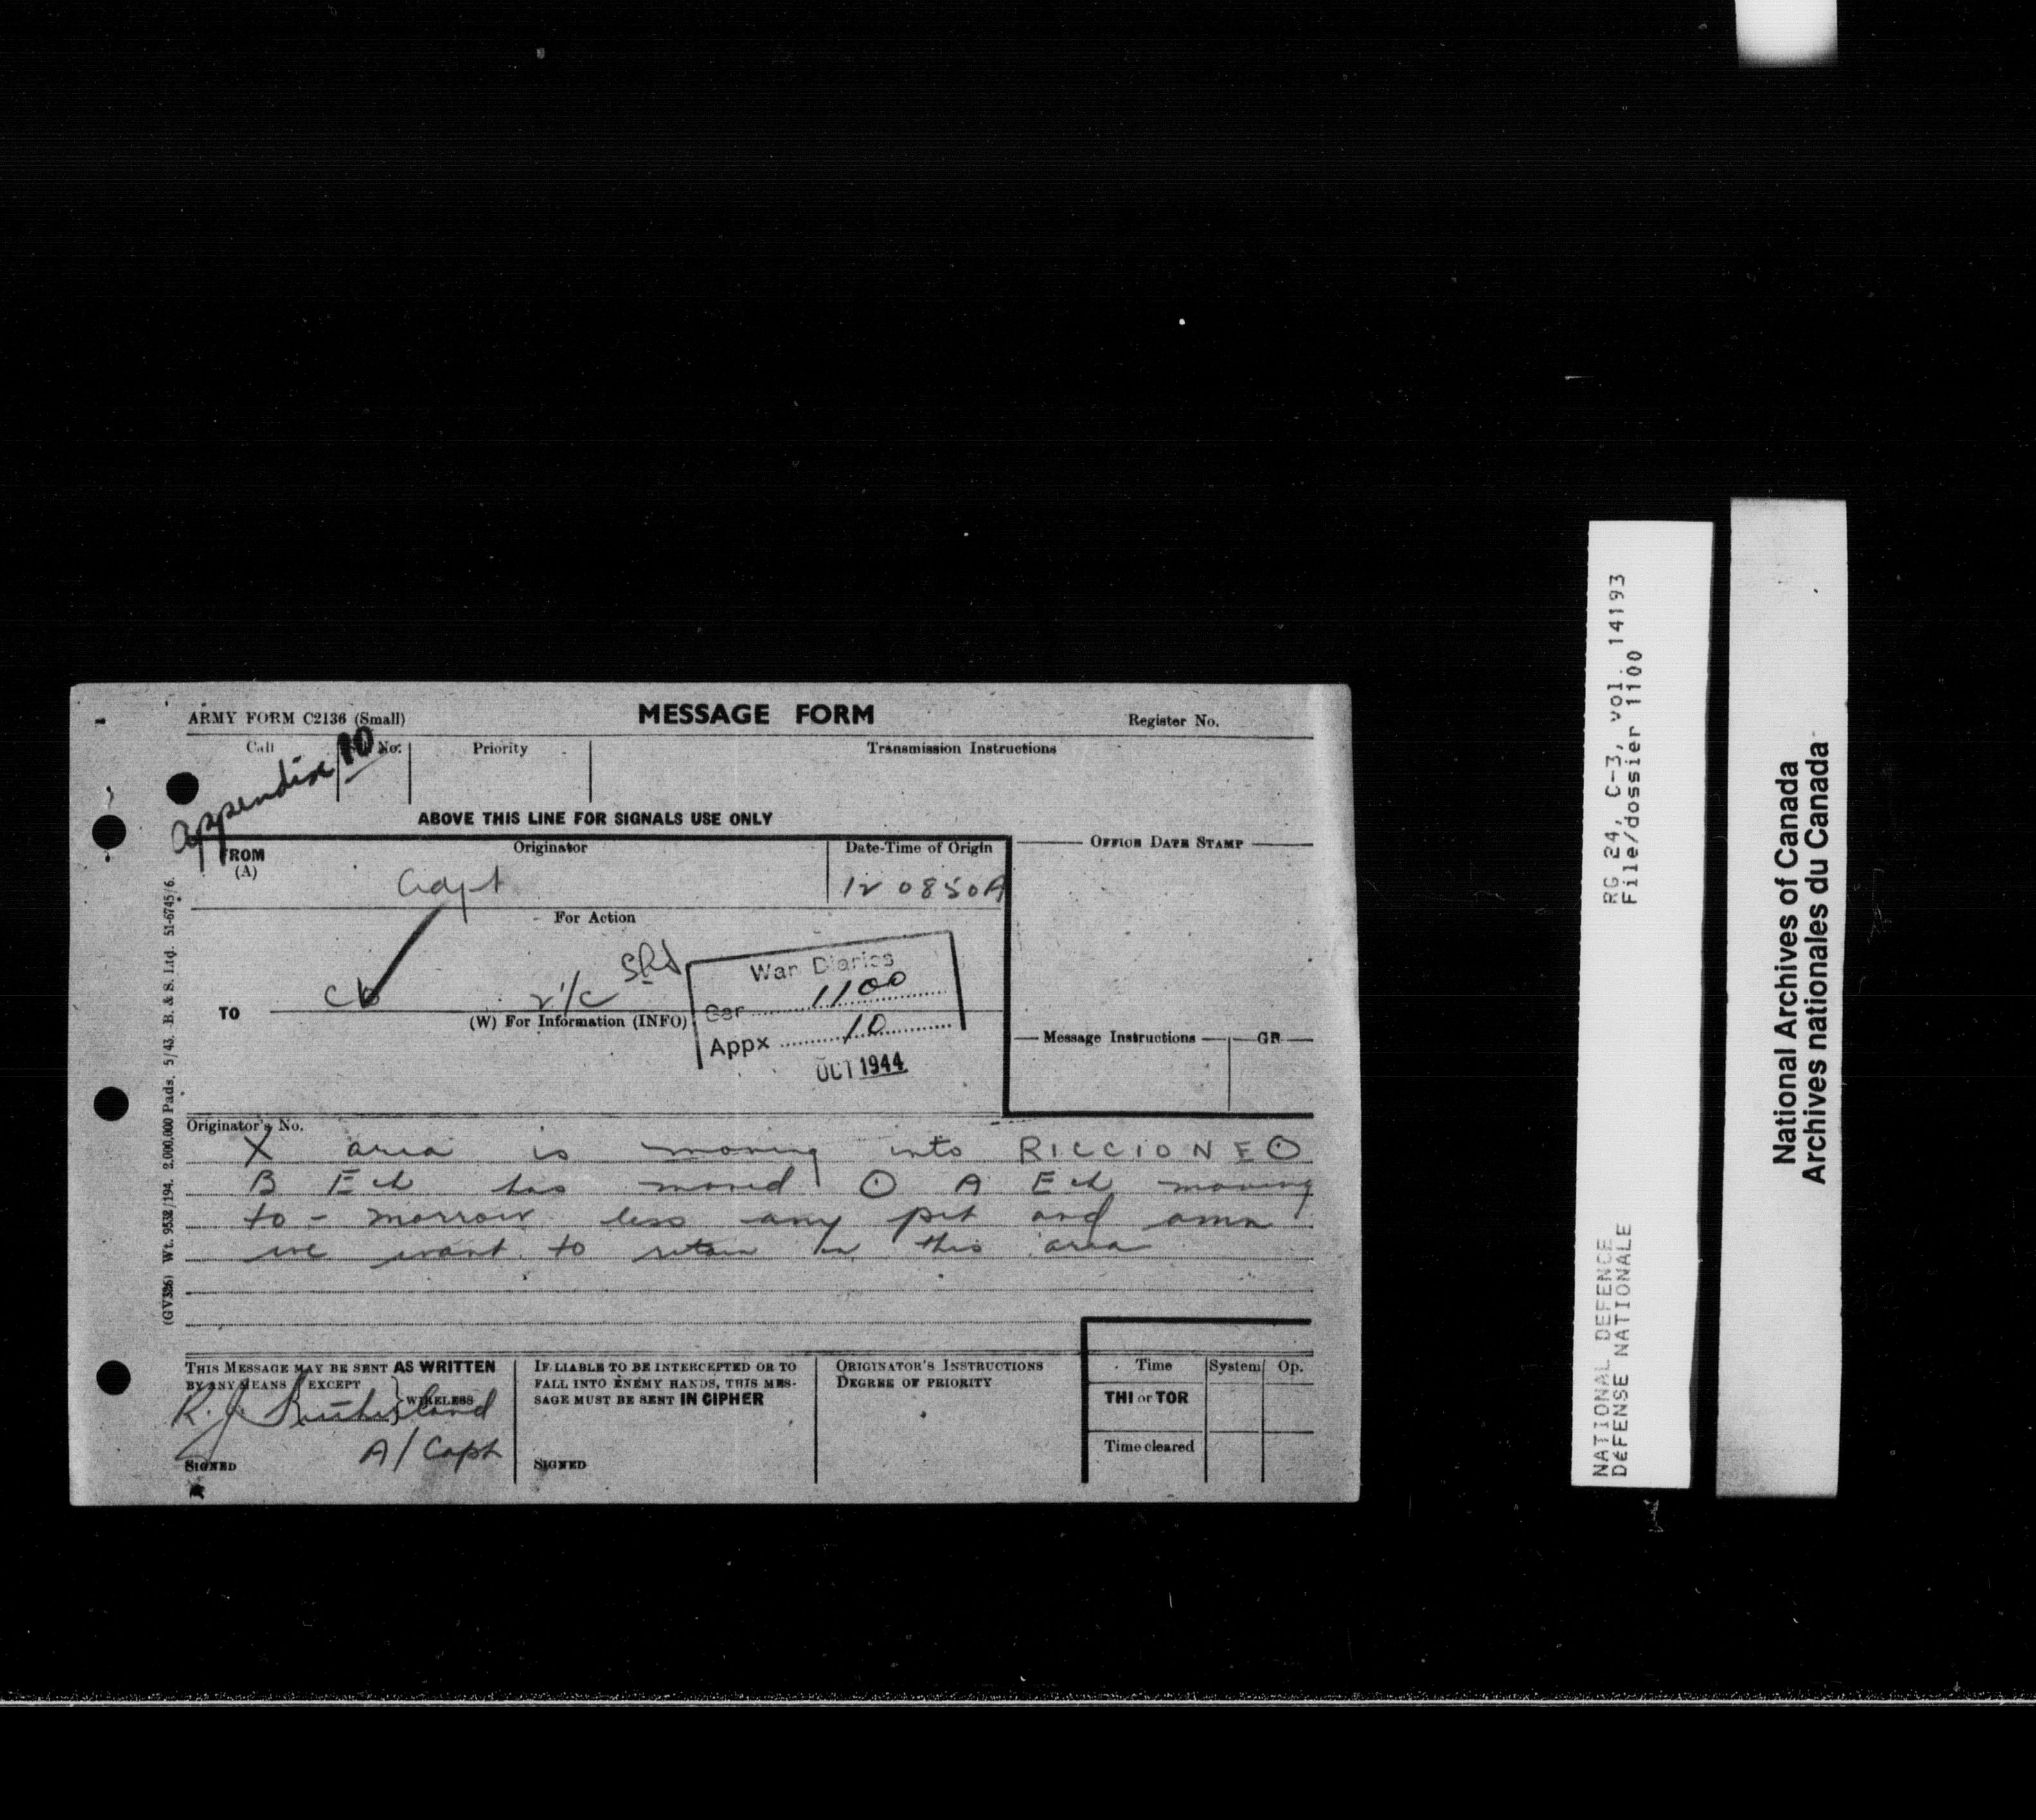 ARMY FORM C2136 (Small)
MESSAGE FORM
Register No.
Call
No.
Priority
Transmission Instructions
Appendix 10
ABOVE THIS LINE FOR SIGNALS USE ONLY
FROM
(A)
Originator
Date-Time of Origin
OFFICE DATE STAMP
Adjt
12 0850A
For Action
TO
2 i/c
(W) For Information (INFO)
War Diaries
Ser 1100
Appx 10
OCT 1944
Message Instructions
GR
Originator's No.
X area is moving into RICCIONE O
B Ech has moved O A Ech moving
to-morrow less any pet and amn
we want to retain in this area
(GV326) Wt. 9532/194. 2,000,000 Pads. 5/43. B. & S. Ltd. 51-6745/6.
THIS MESSAGE MAY BE SENT AS WRITTEN
BY ANY MEANS EXCEPT
WIRELESS
R. J. Sutherland
A/Capt
SIGNED
IF LIABLE TO BE INTERCEPTED OR TO
FALL INTO ENEMY HANDS, THIS MES-
SAGE MUST BE SENT IN CIPHER
SIGNED
ORIGINATOR'S INSTRUCTIONS
DEGREE OF PRIORITY
Time
System
Op.
THI or TOR
Time cleared
RG 24, C-3, vol. 14193
File/dossier 1100
NATIONAL DEFENCE
DÉFENSE NATIONALE
National Archives of Canada
Archives nationales du Canada